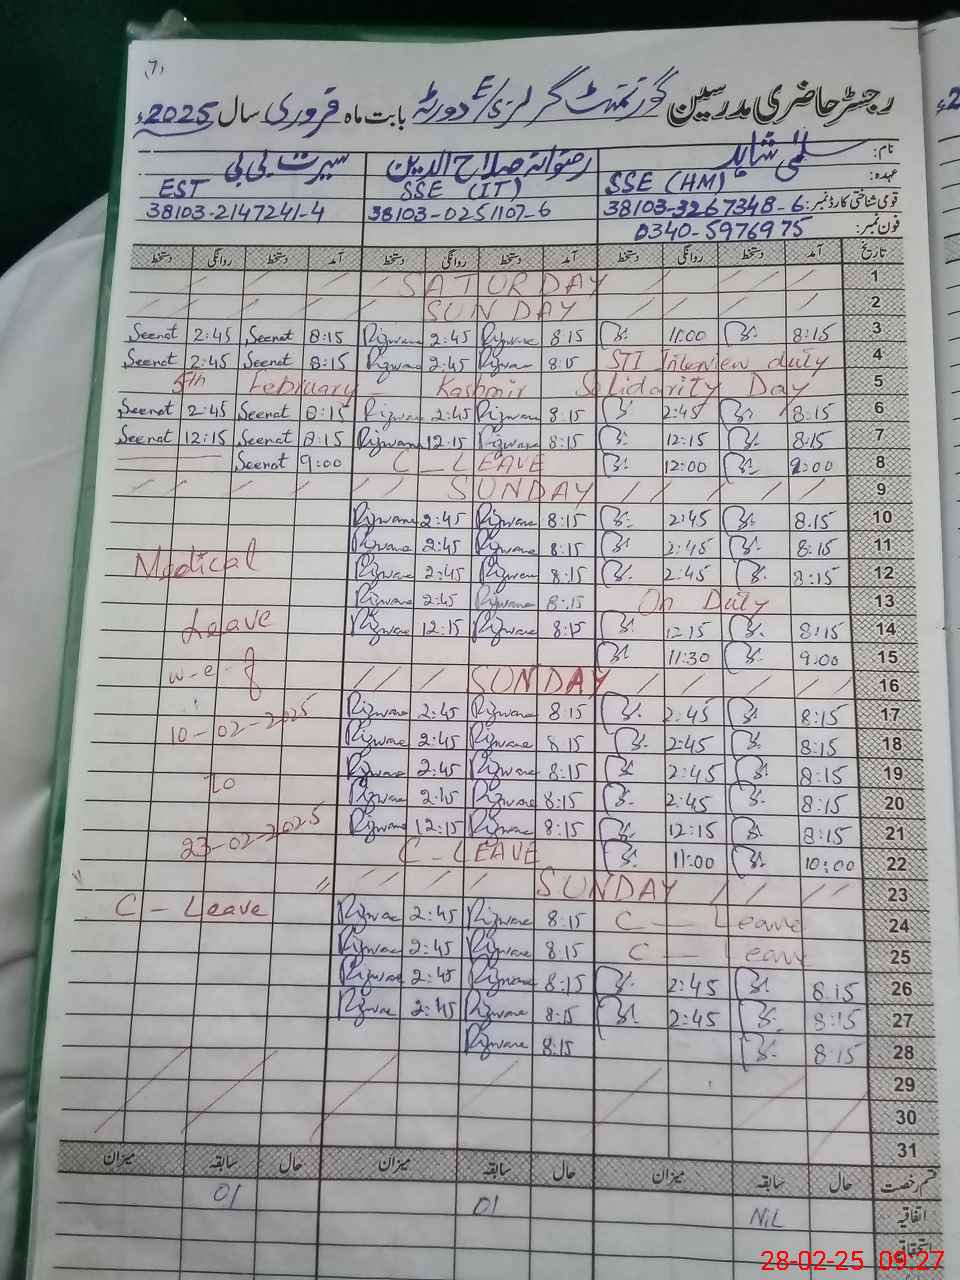 (7)
رجسٹر حاضری مدرسین گورنمنٹ گرلز E/S دورٹہ بابت ماہ فروری سال 2025ء
نام: سلمیٰ شاہد رضوانہ صلاح الدین سیرت بی بی
عہدہ: SSE (HM) SSE (IT) EST
قومی شناختی کارڈ نمبر: 38103-3267348-6 38103-0251107-6 38103-2147241-4
فون نمبر: 0340-5976975
تاریخ آمد دستخط روانگی دستخط آمد دستخط روانگی دستخط آمد دستخط روانگی دستخط
SATURDAY 1
SUNDAY 2
Seerat 2:45 Seerat 8:15 Rizwana 2:45 Rizwana 8:15 11:00 8:15 3
Seerat 2:45 Seerat 8:15 Rizwana 2:45 Rizwana 8:15 STI Interview duty 4
5th February Kashmir Solidarity Day 5
Seerat 2:45 Seerat 8:15 Rizwana 2:45 Rizwana 8:15 2:45 8:15 6
Seerat 12:15 Seerat 8:15 Rizwana 12:15 Rizwana 8:15 12:15 8:15 7
Seerat 9:00 C-LEAVE 12:00 9:00 8
SUNDAY 9
Rizwana 2:45 Rizwana 8:15 2:45 8:15 10
Rizwana 2:45 Rizwana 8:15 2:45 8:15 11
Medical Rizwana 2:45 Rizwana 8:15 2:45 8:15 12
Rizwana 2:45 Rizwana 8:15 On Duty 13
Leave Rizwana 12:15 Rizwana 8:15 12:15 8:15 14
11:30 9:00 15
w-e-f SUNDAY 16
Rizwana 2:45 Rizwana 8:15 2:45 8:15 17
10-02-2025 Rizwana 2:45 Rizwana 8:15 2:45 8:15 18
Rizwana 2:45 Rizwana 8:15 2:45 8:15 19
to Rizwana 2:45 Rizwana 8:15 2:45 8:15 20
Rizwana 12:15 Rizwana 8:15 12:15 8:15 21
23-02-2025 C-LEAVE 11:00 10:00 22
SUNDAY 23
C-Leave Rizwana 2:45 Rizwana 8:15 C-Leave 24
Rizwana 2:45 Rizwana 8:15 C-Leave 25
Rizwana 2:45 Rizwana 8:15 2:45 8:15 26
Rizwana 2:45 Rizwana 8:15 2:45 8:15 27
Rizwana 8:15 8:15 28
29
30
31
قسم رخصت حال سابقہ میزان حال سابقہ میزان حال سابقہ میزان
اتفاقیہ NiL 01 01
استحقاقیہ
28-02-25 09:27